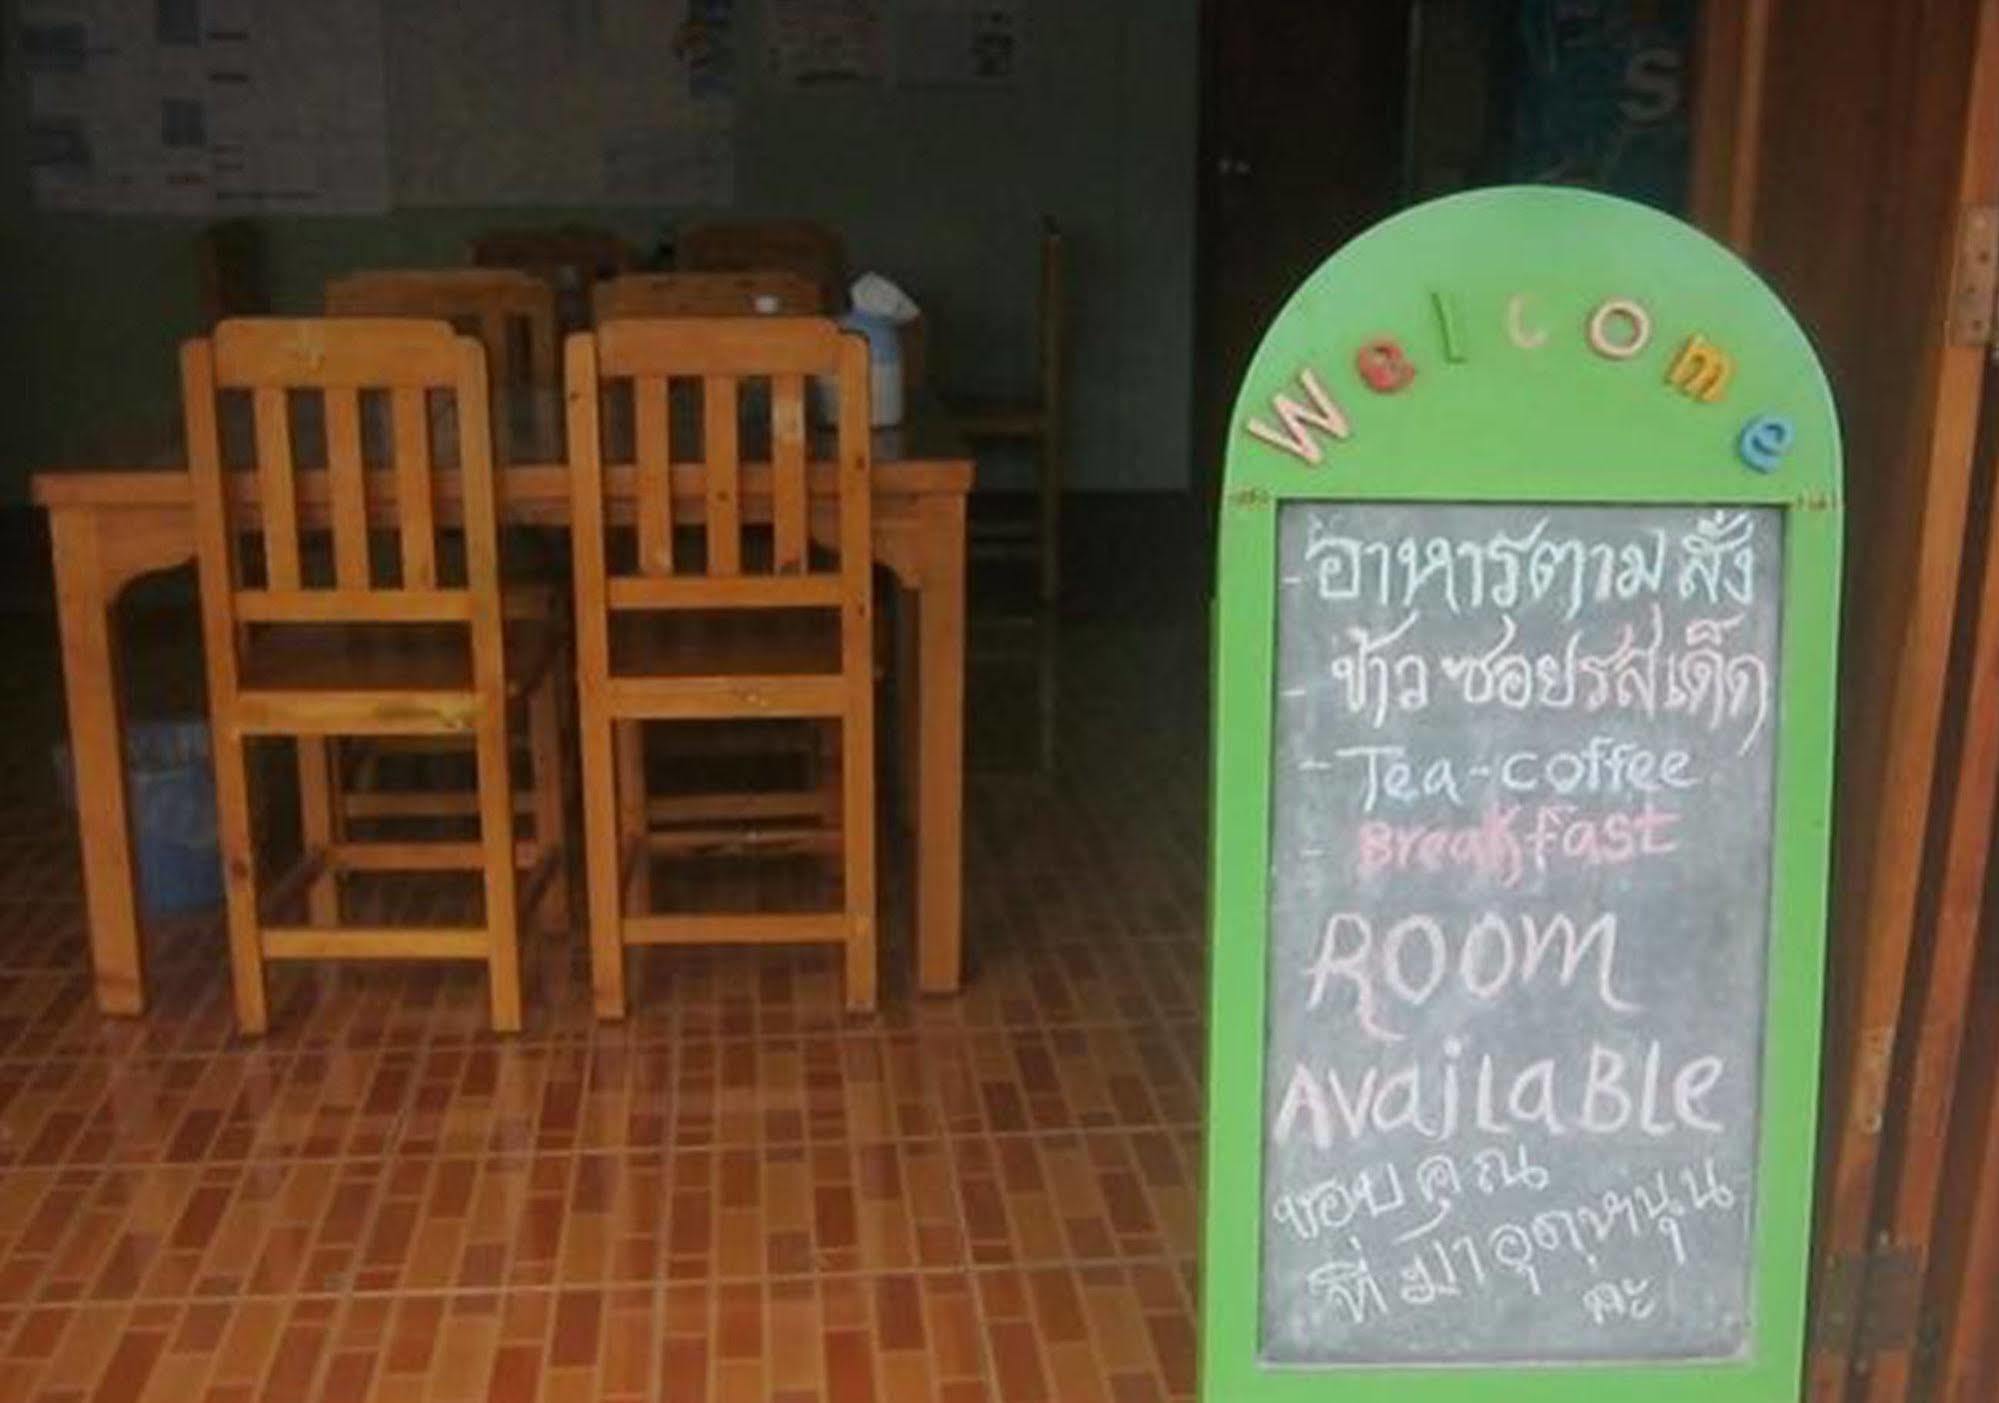 Welcome
- อาหารตามสั่ง
- ข้าวซอยรสเด็ด
- Tea-coffee
- Breakfast
ROOM
AvaiLaBLe
ขอบคุณ
ที่มาอุดหนุน
คะ
S